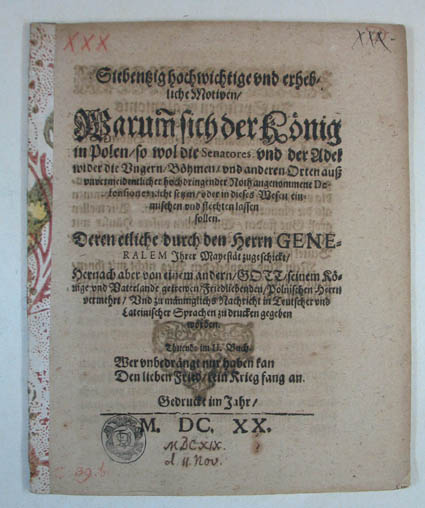 XXX
XXX.
Siebentzig hochwichtige vnd erheb-
liche Motiven/
Warum̃ sich der König
in Polen/ so wol die Senatores vnd der Adel
wider die Vngern/ Böhmen/ vnd anderen Orten auß
vnvermeidentlicher hochdringender Noth angenommene De-
fension nicht setzen/ oder in dieses Wesen ein-
mischen vnd flechten lassen
sollen.
Deren etliche durch den Herrn GENE-
RALEM Ihrer Mayestät zugeschickt/
Hernach aber von einem andern/ GOTT/ seinem Kö-
nige vnd Vaterlande getrewen/ Friedliebenden/ Polnischen Herrn
vermehrt/ Vnd zu männiglichs Nachricht in Teutscher vnd
Lateinischer Sprachen zu drucken gegeben
worden.
im II. Buch
Wer vnbedrängt nur haben kan
Den lieben Fried/ kein Krieg fang an.
Gedruckt im Jahr/
M. DC. XX.
MDCXIX.
d 11 Nov.